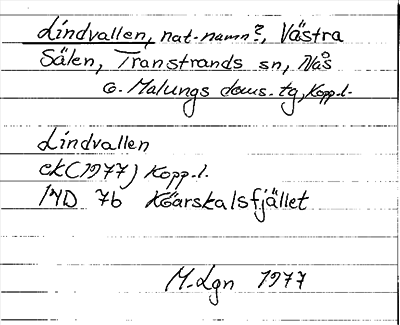 Lindvallen, nat.namn?, Västra
Sälen, Transtrands sn, Nås
o. Malungs doms. tg, Kopp.l.
Lindvallen
ek (1977) Kopp.l.
14D 7b Köarskalsfjället
M.Lgn 1977